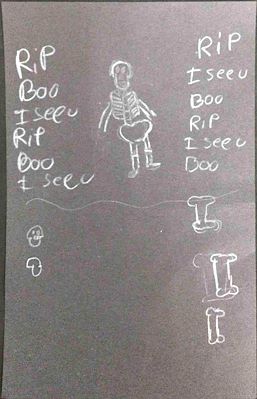 RiP
Boo
I see u
Rip
Boo
I see u
RiP
I see u
Boo
RiP
I see u
Boo